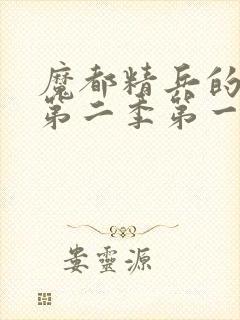 魔都精兵的
第二季第一
娄靈源